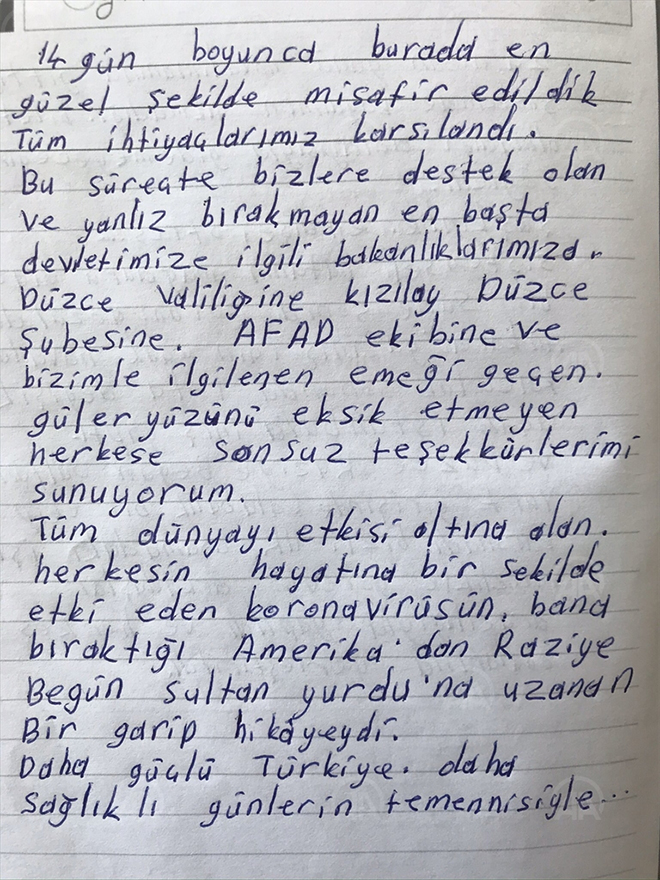 14 gün boyunca burada en
güzel şekilde misafir edildik
Tüm ihtiyaçlarımız karsılandı.
Bu süreçte bizlere destek olan
ve yanlız bırakmayan en başta
devletimize ilgili bakanlıklarımıza.
Düzce Valiliğine kızılay Düzce
Şubesine. AFAD ekibine ve
bizimle ilgilenen emeği geçen.
güler yüzünü eksik etmeyen
herkese sonsuz teşekkürlerimi
sunuyorum.
Tüm dünyayı etkisi altına alan.
herkesin hayatına bir sekilde
etki eden koronavirüsün, bana
bıraktığı Amerika'dan Raziye
Begün sultan yurdu'na uzanan
Bir garip hikâyeydi.
Daha güçlü Türkiye. daha
sağlıklı günlerin temennisiyle...